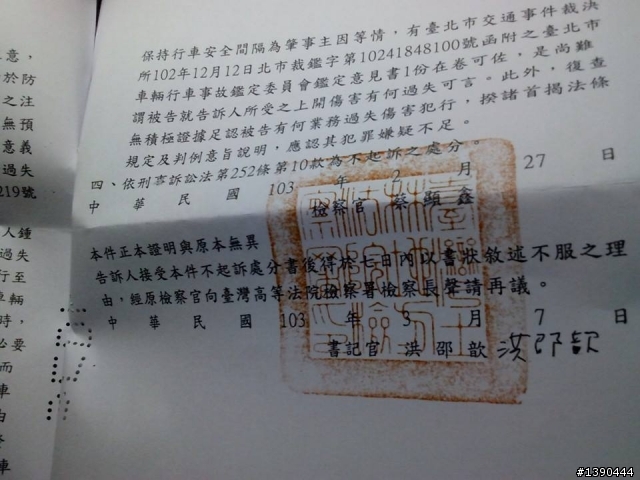 保持行車安全間隔為肇事主因等情，有臺北市交通事件裁決
所102年12月12日北市裁鑑字第10241848100號函附之臺北市
車輛行車事故鑑定委員會鑑定意見書1份在卷可佐，是尚難
謂被告就告訴人所受之上開傷害有何過失可言。此外，復查
無積極證據足認被告有何業務過失傷害犯行，揆諸首揭法條
規定及判例意旨說明，應認其犯罪嫌疑不足。
四、依刑事訴訟法第252條第10款為不起訴之處分。
中 華 民 國 103 年 2 月 27 日
檢察官 蔡顯鑫
本件正本證明與原本無異
告訴人接受本件不起訴處分書後得於七日內以書狀敘述不服之理
由，經原檢察官向臺灣高等法院檢察署檢察長聲請再議。
中 華 民 國 103 年 3 月 7 日
書記官 洪邵歆 洪邵歆
意，
於防
之注
無預
意義
過失
219號
人鍾
過失
行至
車輛
時，
必要
而
車
由
車
#1390444